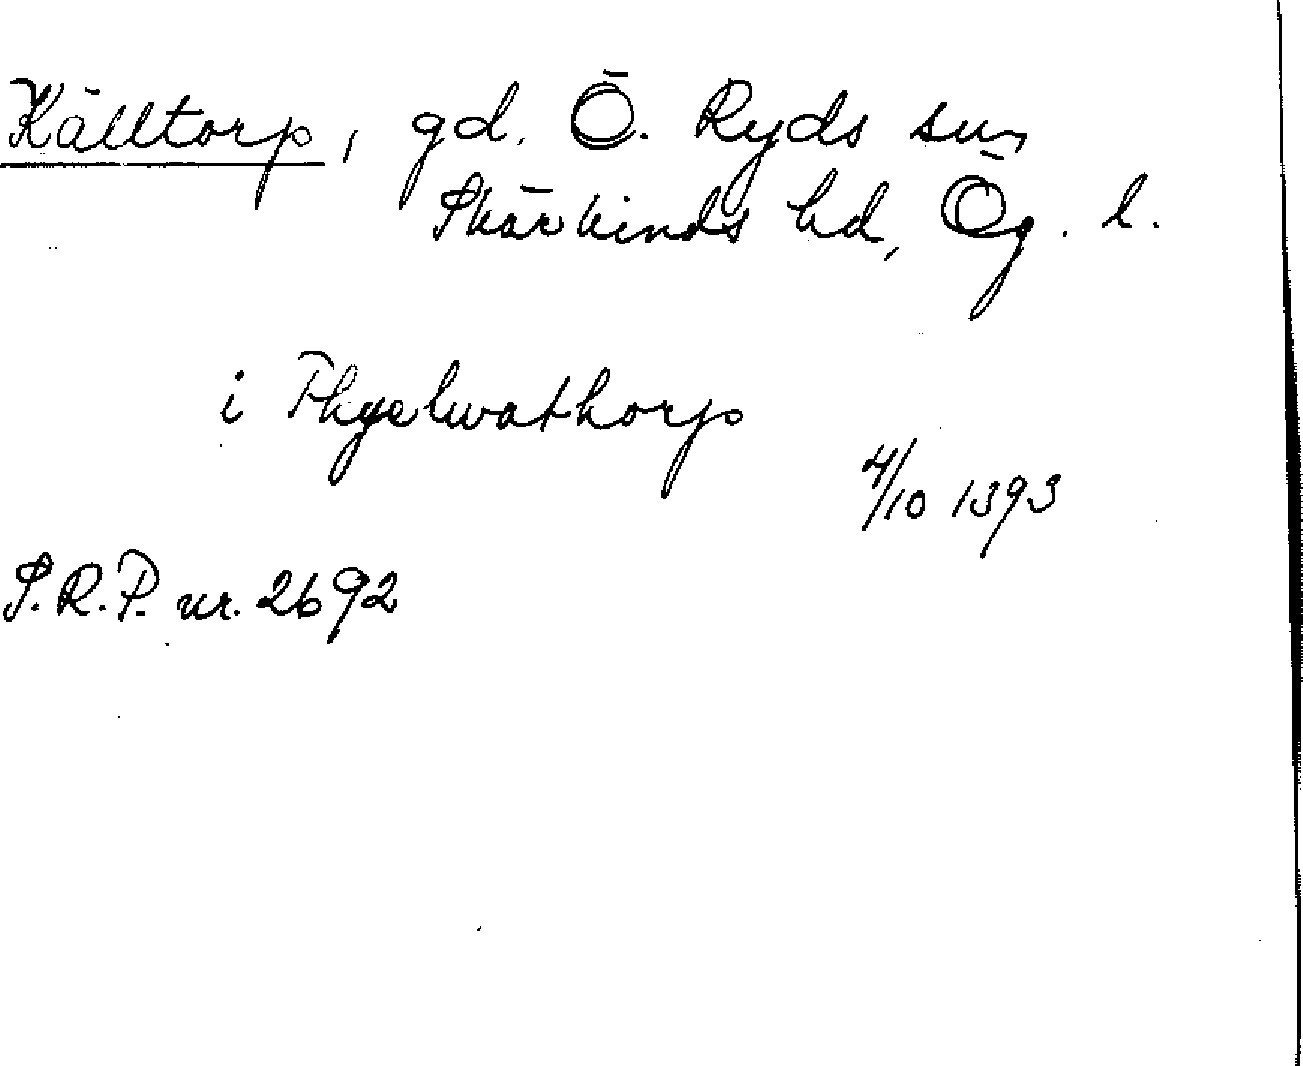 Källtorp, gd. Ö. Ryds sn,
Skärkinds hd, Ög. l.
i Thyelwathorp
4/10 1393
S.R.P. nr. 2692